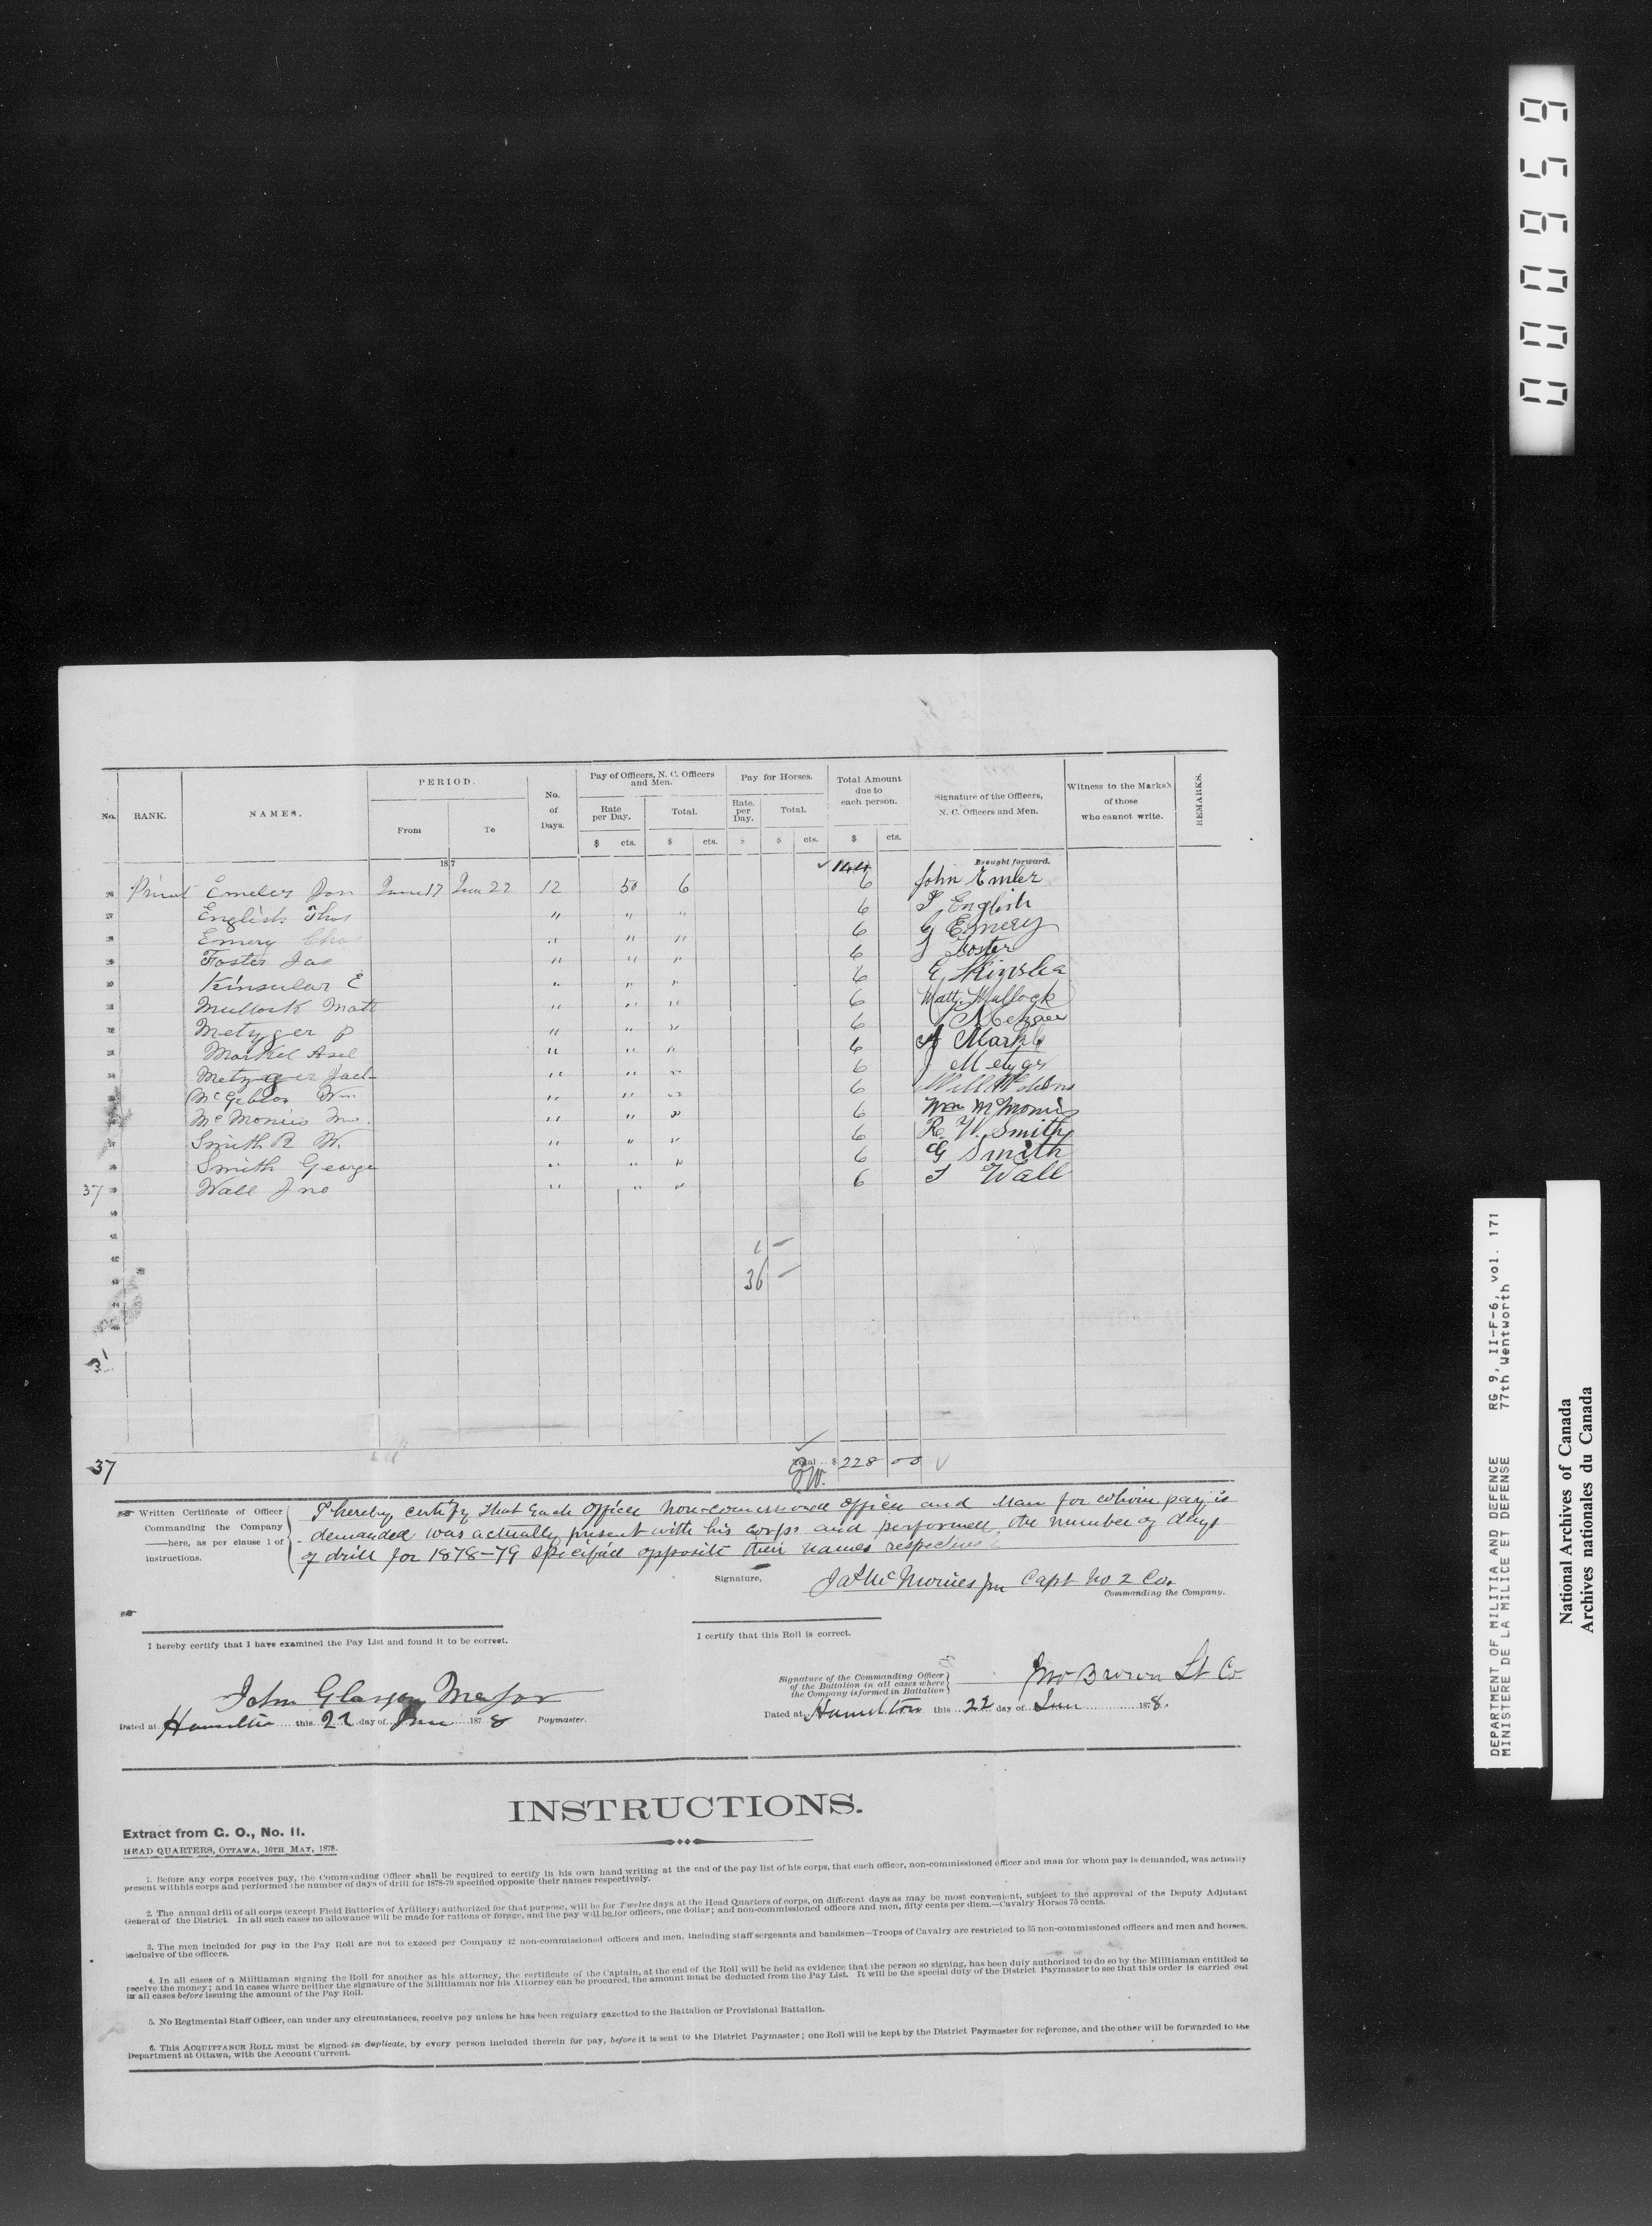 PERIOD.
Pay of Officers, N. C. Officers and Men.
Pay for Horses.
Total Amount due to each person.
Signature of the Officers, N. C. Officers and Men.
Witness to the Marks of those who cannot write.
REMARKS.
No. RANK. NAMES. From To No. of Days. Rate per Day. Total. Rate. per Day. Total.
$ cts. $ cts. $ $ cts. $ cts.
187 144 Brought forward.
Emeler Jon June 17 June 22 12 50 6 6 John Emler
English Thos " " " 6 T English
Emery Chas " " " 6 G Emery
Foster Jas " " " 6 J Foster
Kinsular E " " " 6 E
Mullock Matt " " " 6 Matt Mullock
Metzger P " " " 6 P Metzger
Markel Asel " " " 6 A Markle
Metzger Jack " " " 6 J Metzger
McGibbon Wm " " " 6
McMonies Wm. " " " 6 Wm McMonies
Smith R W. " " " 6 R. W. Smith
Smith George " " " 6 G Smith
37 Wall Jno " " " 6 J Wall
1 -
36 -
37 Total.. $ 228 00
Written Certificate of Officer Commanding the Company here, as per clause 1 of instructions.
I hereby certify that Each Officer Non-commissioned Officer and Man for whom pay is
demanded was actually present with his Corps and performed the number of days
of drill for 1878-79 Specified opposite their names respectively
Signature, Jas McMonies Jnr Capt No 2 Co.
Commanding the Company.
I hereby certify that I have examined the Pay List and found it to be correct.
I certify that this Roll is correct.
John Glasgow Major
Signature of the Commanding Officer of the Battalion in all cases where the Company is formed in Battalion
Jno Brown Lt Co
Dated at Hamilton this 22 day of June 1878 Paymaster.
Dated at Hamilton this 22 day of June 1878.
INSTRUCTIONS.
Extract from G. O., No. 11.
HEAD QUARTERS, OTTAWA, 10TH MAY, 1878.
1. Before any corps receives pay, the Commanding Officer shall be required to certify in his own hand writing at the end of the pay list of his corps, that each officer, non-commissioned officer and man for whom pay is demanded, was actually
present withhis corps and performed the number of days of drill for 1878-79 specified opposite their names respectively.
2. The annual drill of all corps (except Field Batteries of Artillery) authorized for that purpose, will be for Twelve days at the Head Quarters of corps, on different days as may be most convenient, subject to the approval of the Deputy Adjutant
General of the District. In all such cases no allowance will be made for rations or forage, and the pay will be for officers, one dollar; and non-commissioned officers and men, fifty cents per diem.—Cavalry Horses 75 cents.
3. The men included for pay in the Pay Roll are not to exceed per Company 42 non-commissioned officers and men, including staff sergeants and bandsmen—Troops of Cavalry are restricted to 35 non-commissioned officers and men and horses,
inclusive of the officers.
4. In all cases of a Militiaman signing the Roll for another as his attorney, the certificate of the Captain, at the end of the Roll will be held as evidence that the person so signing, has been duly authorized to do so by the Militiaman entitled to
receive the money; and in cases where neither the signature of the Militiaman nor his Attorney can be procured, the amount must be deducted from the Pay List. It will be the special duty of the District Paymaster to see that this order is carried out
in all cases before issuing the amount of the Pay Roll.
5. No Regimental Staff Officer, can under any circumstances, receive pay unless he has been regulary gazetted to the Battalion or Provisional Battalion.
6. This ACQUITTANCE ROLL must be signed in duplicate, by every person included therein for pay, before it is sent to the District Paymaster; one Roll will be kept by the District Paymaster for reference, and the other will be forwarded to the
Department at Ottawa, with the Account Current.
DEPARTMENT OF MILITIA AND DEFENCE RG 9, II-F-6, vol. 171
MINISTERE DE LA MILICE ET DEFENSE 77th Wentworth
National Archives of Canada
Archives nationales du Canada